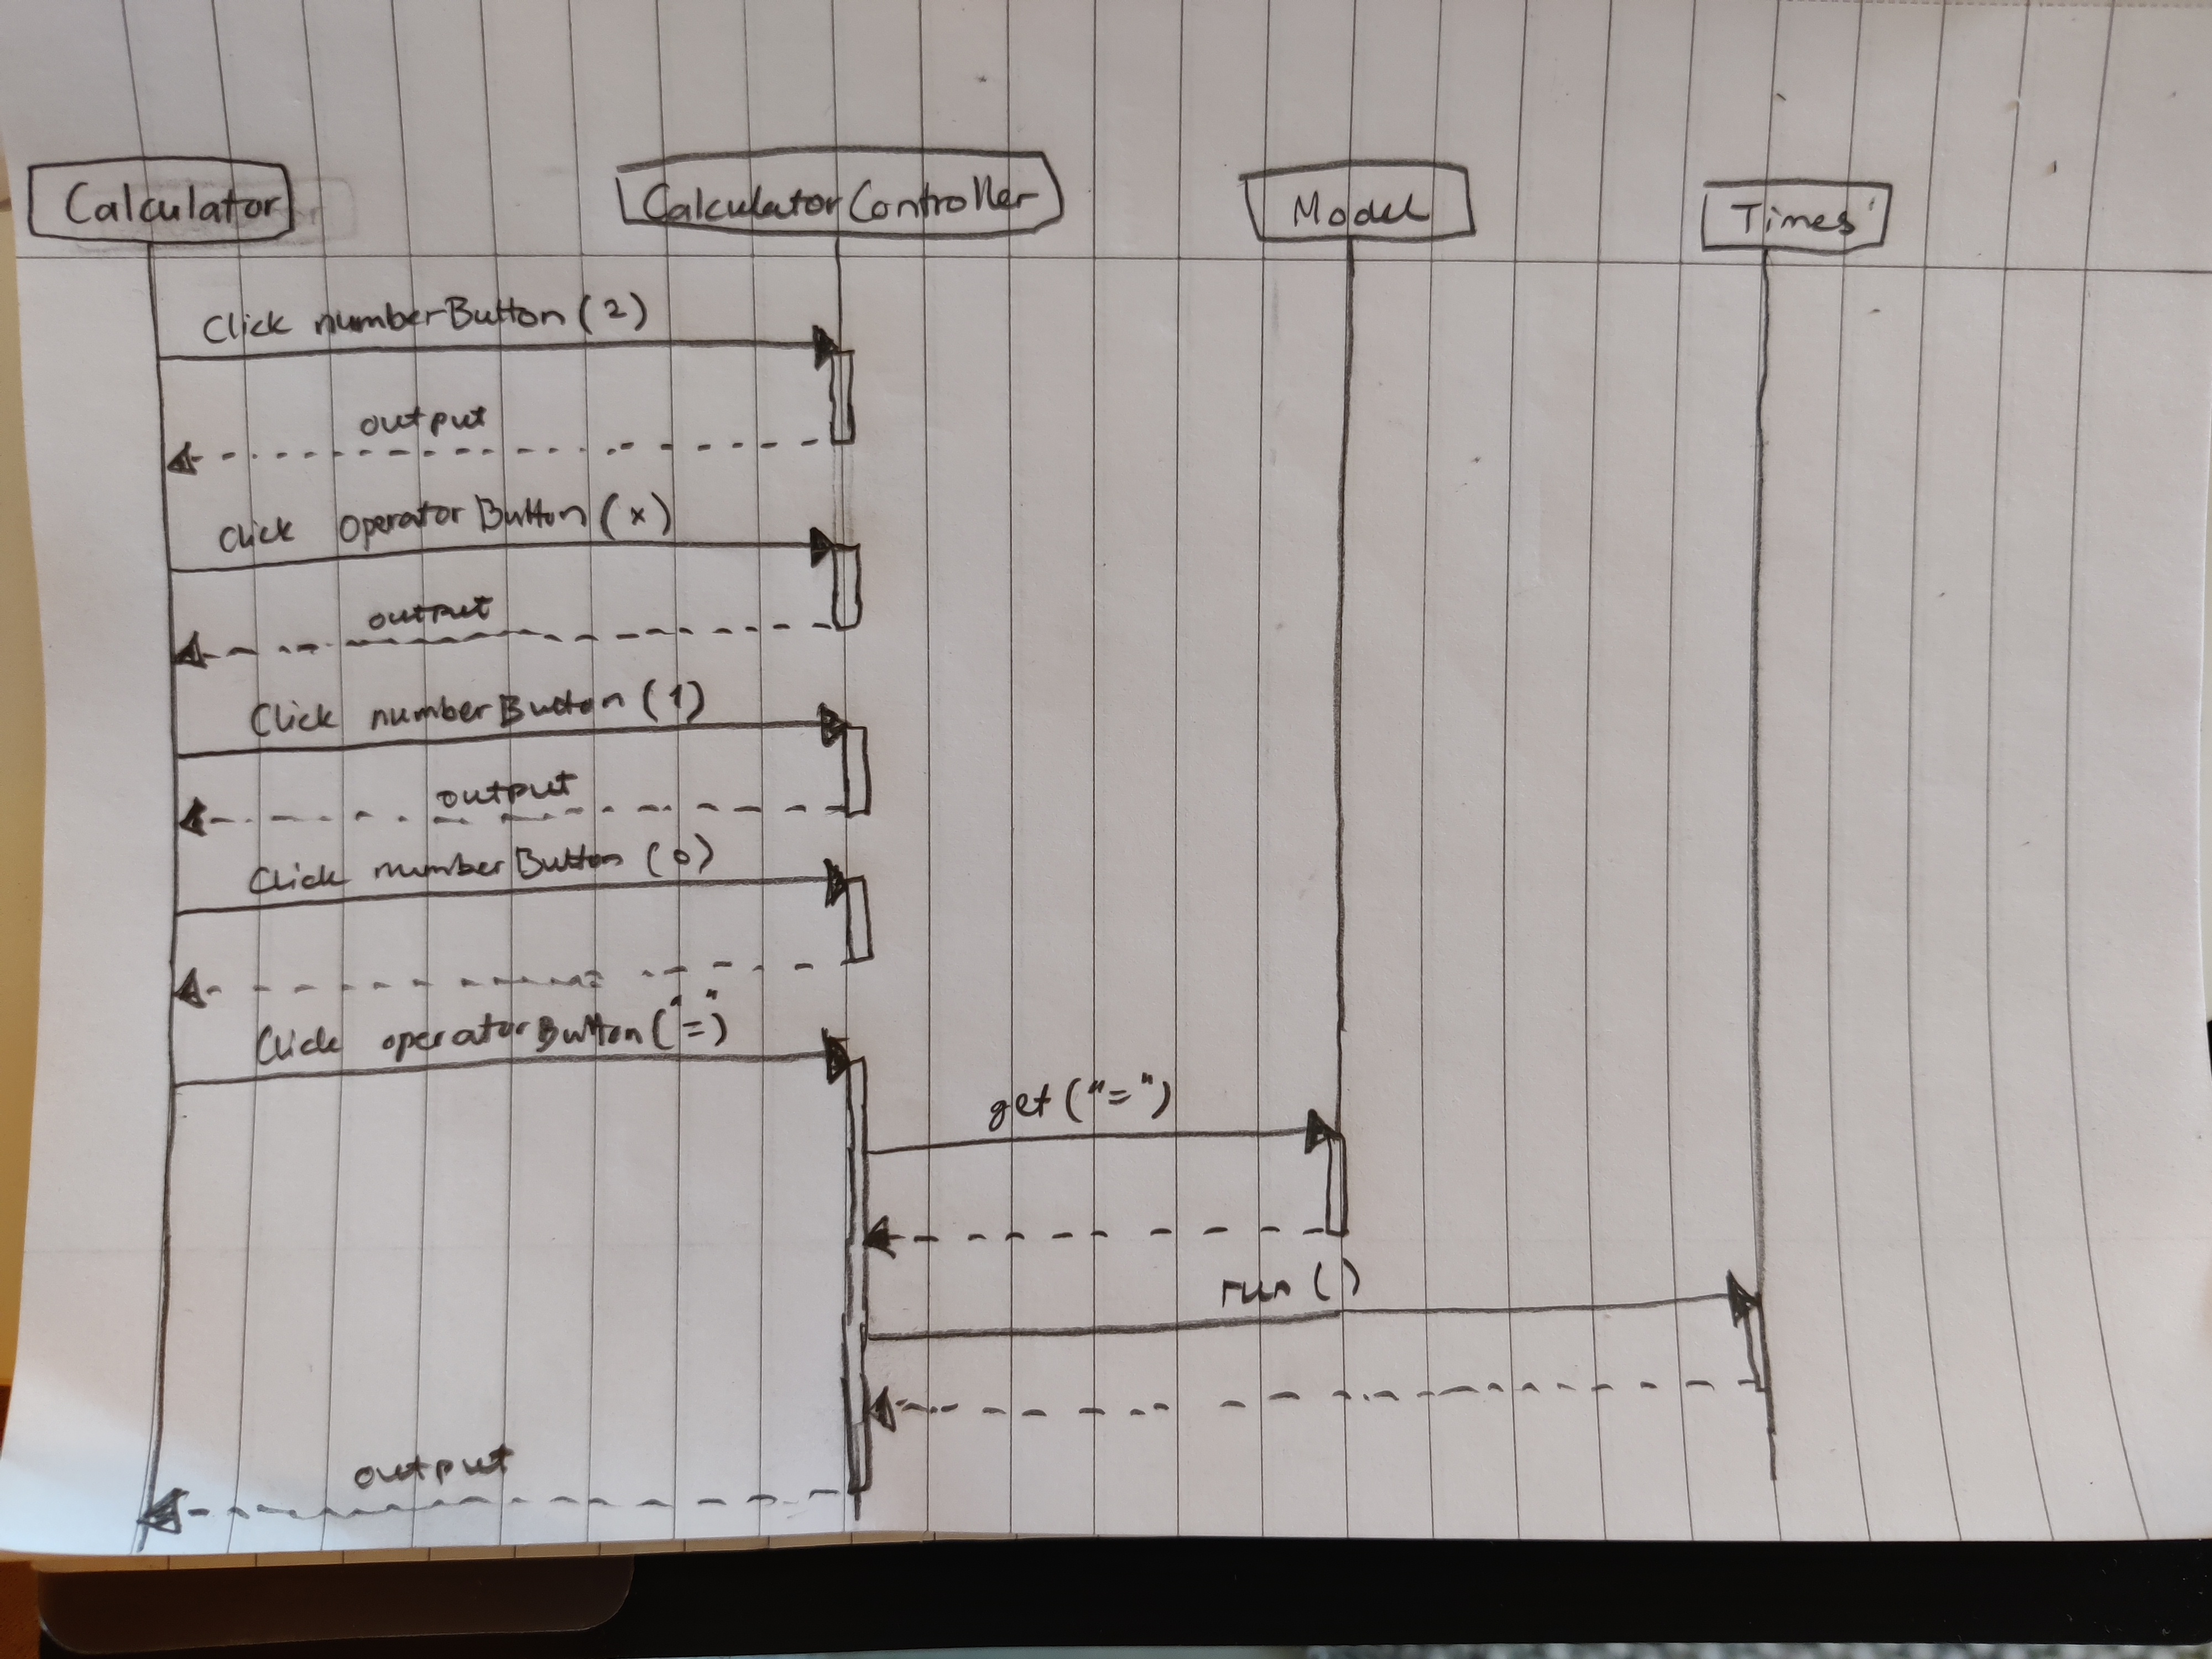 Calculator
CalculatorController
Model
Times
Click numberButton (2)
output
Click OperatorButton (x)
output
Click numberButton (1)
output
Click numberButton (0)
Click operatorButton ("=")
get ("=")
run ()
output